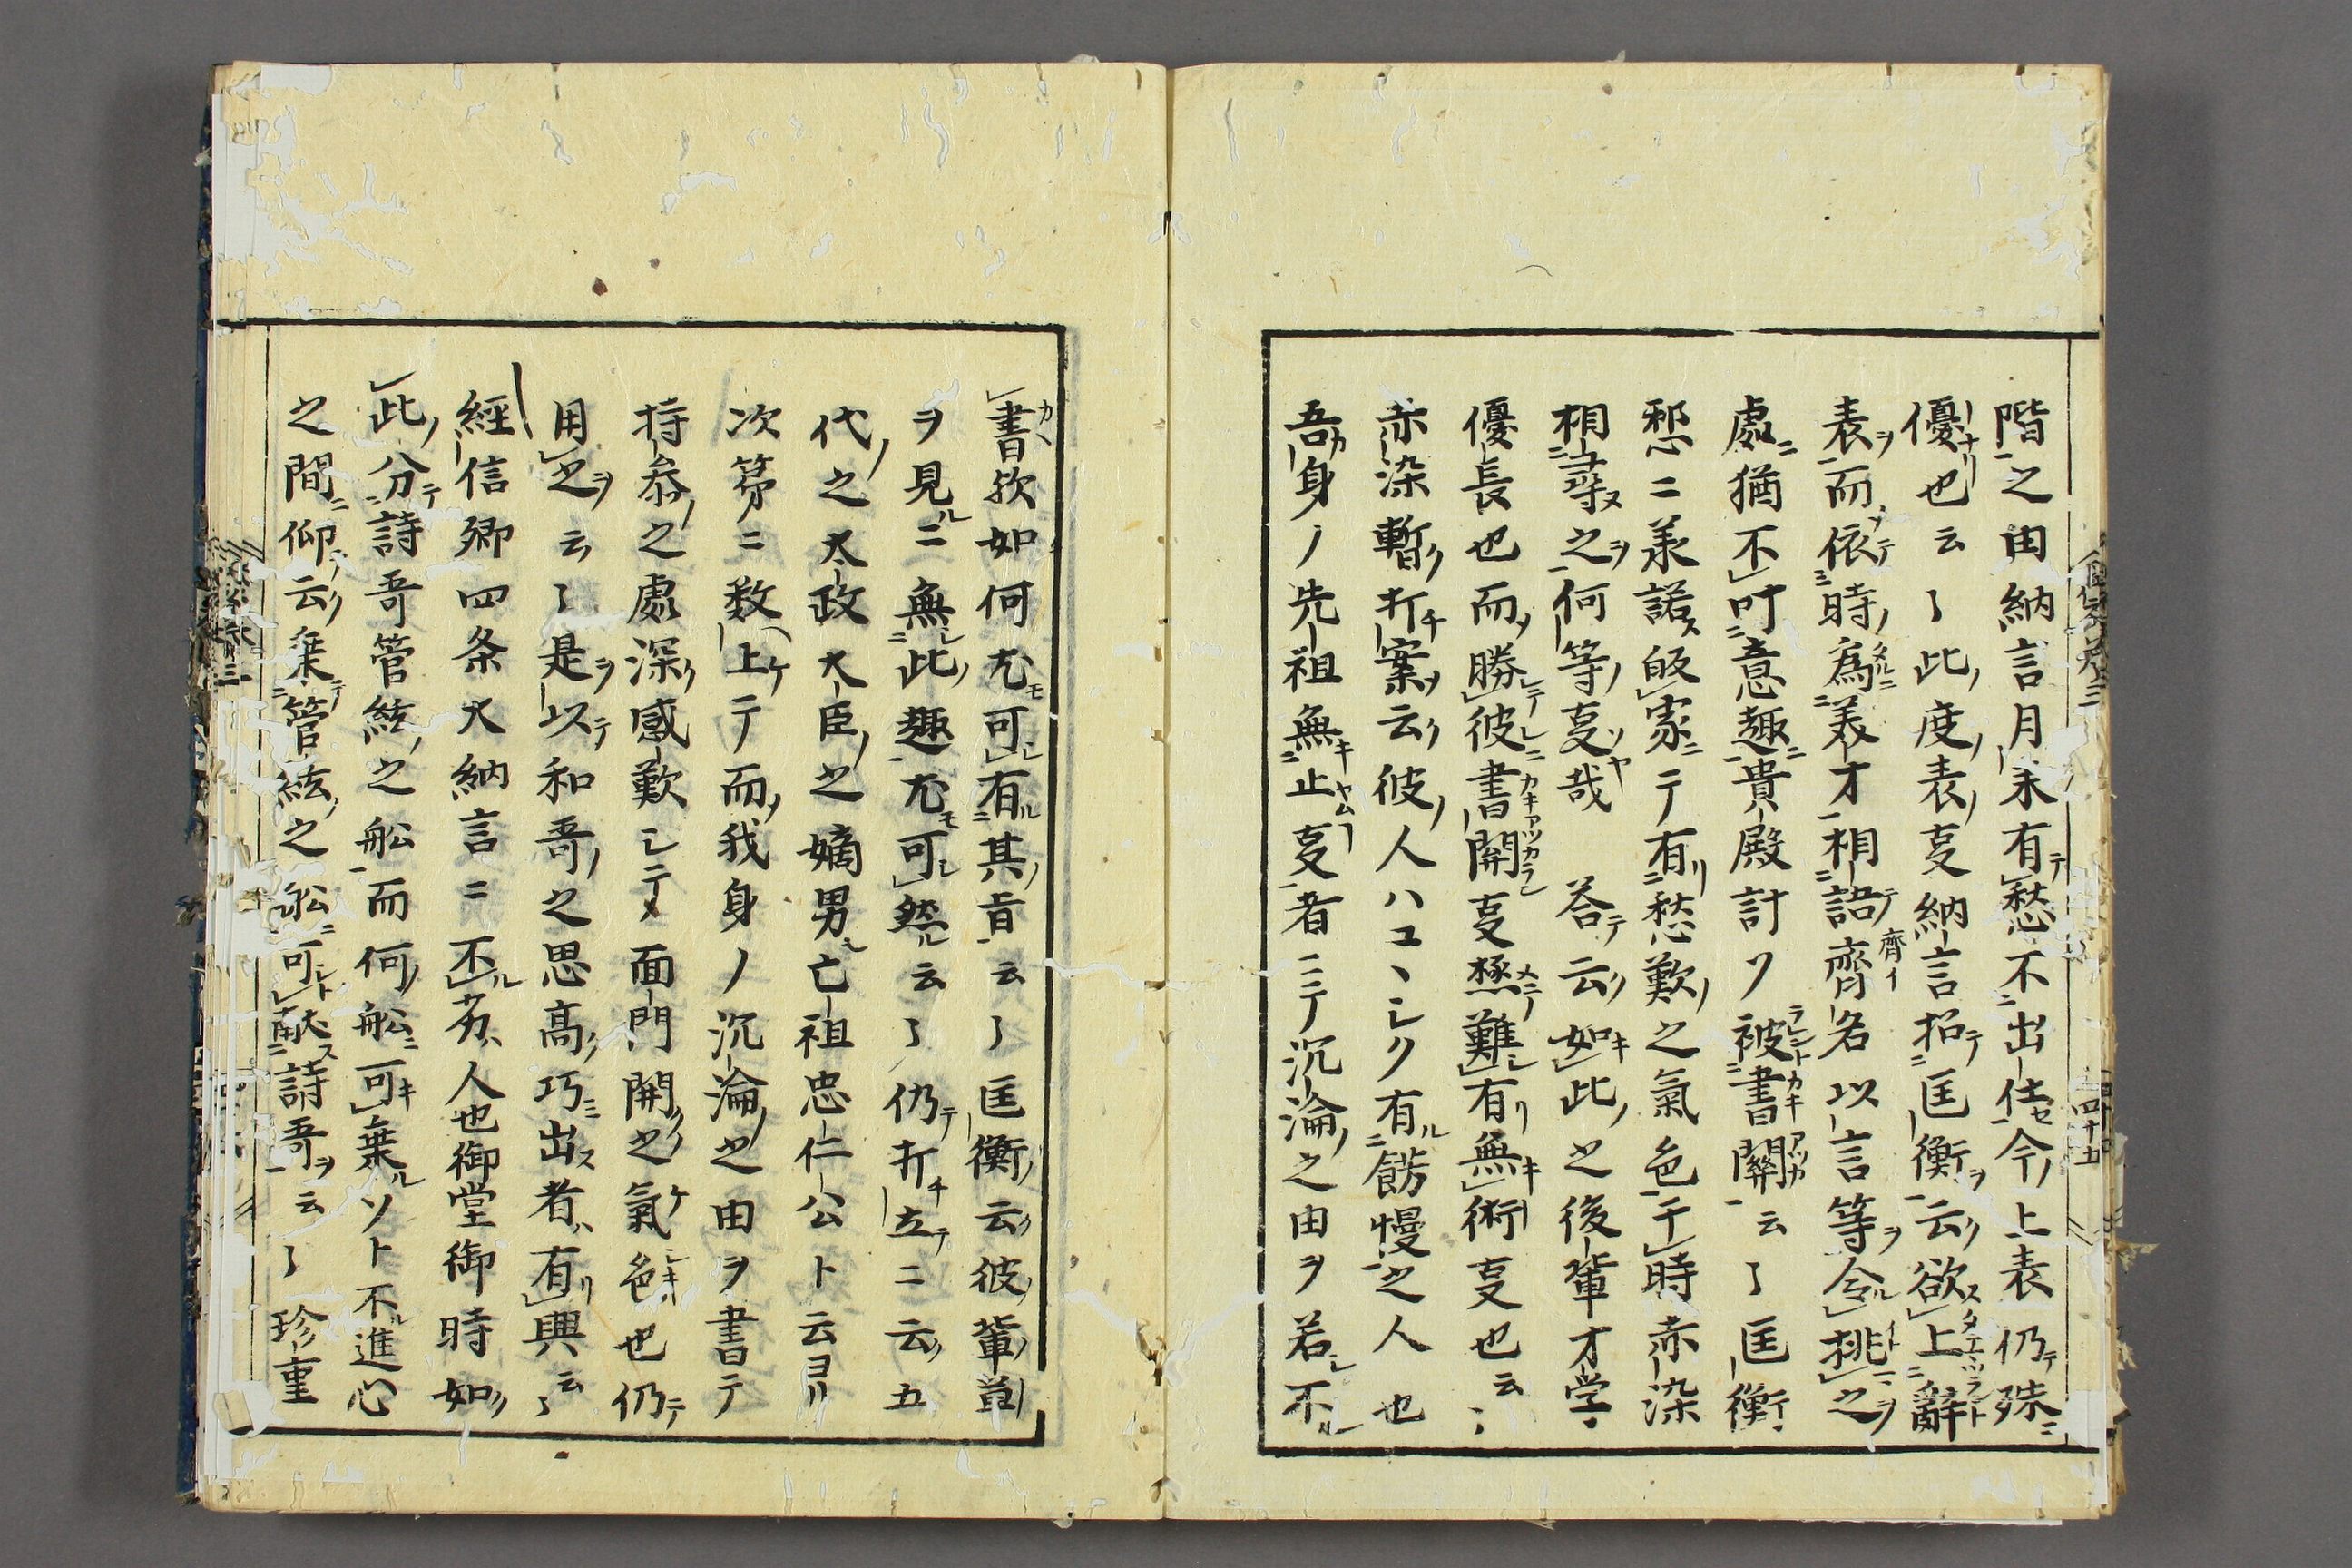 階之由納言月来有愁不出仕今上表仍殊
優也云々此度表叓納言招匡衡云欲上辭
表而依時為英才相語齊名以言等令挑之
處猶不叶意趣貴殿計ソ被書開云々匡衡
愁ニ羕諾皈家ニテ有愁歎之氣色于時赤染
相尋之何等叓哉 答云如此之後輩才学
優長也而勝彼書開叓極難有無術叓也云々
赤染暫打案云彼人ハコヽシク有餝慢之人也
吾身ノ先祖無止叓者ニテ沉淪之由ヲ若不
書欤如何尤可有其旨云々匡衡云彼輩草
ヲ見ニ無此趣尤可然云々仍打立ニ云五
代之太政大臣之嫡男亡祖忠仁公ト云ヨリ
次苐ニ数上テ而我身ノ沉淪之由ヲ書テ
持叅之處深感歎シテメ面門開之氣色也仍
用之云々是以和哥之思髙巧出者有興云々
經信卿四条大納言ニ不劣人也御堂御時如
此分詩哥管絃之舩而何舩可乗ソト不進心
之間仰云乗管絃之舩可献詩哥云々珍重